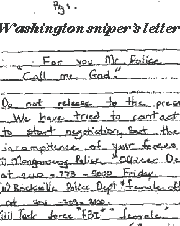 Pg 2.
Washington sniper's letter
For you Mr. Police
"Call me God."
Do not release to the press
We have tried to contact
to start negotiation, But the
incompitence of your forces
(i) Montgomery Police "Officer De
at 240-773-5000 Friday
(ii) Rockville Police Dept. female off
at
(iii) Task force "FBI" female